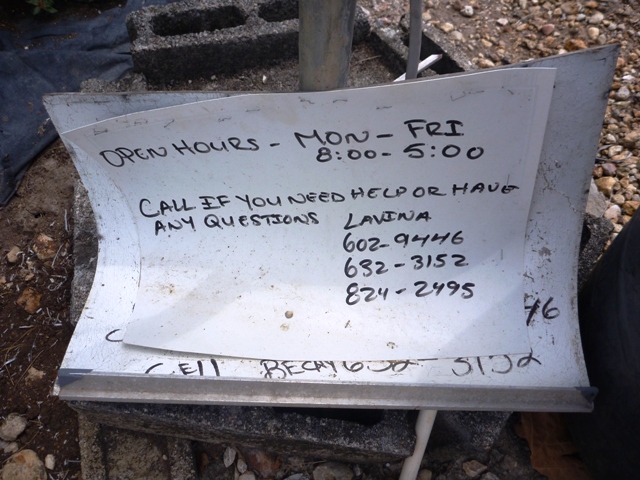 OPEN HOURS - MON - FRI
8:00 - 5:00
CALL IF YOU NEED HELP OR HAVE
ANY QUESTIONS LAVINA
602-9446
632-3152
824-2495
46
CEll BECKY 632-3152